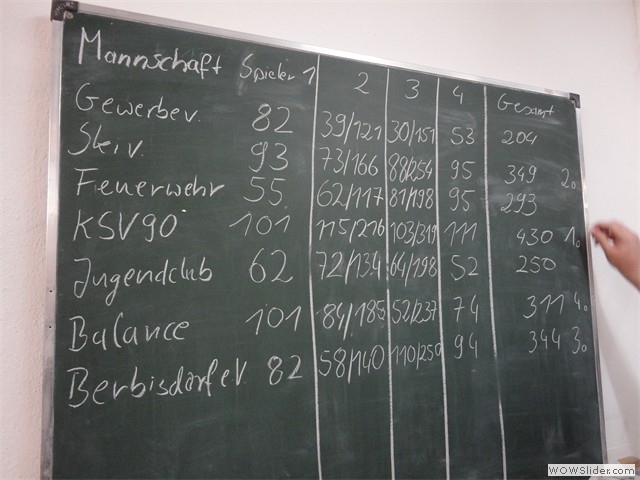 Mannschaft Spieler 1 2 3 4 Gesamt
Gewerbev. 82 39/121 30/151 53 204
Skiv. 93 73/166 88/254 95 349 2.
Feuerwehr 55 62/117 81/198 95 293
KSV90 101 115/216 103/319 111 430 1.
Jugendclub 62 72/134 64/198 52 250
Balance 101 84/185 52/237 74 311 4.
Berbisdorfer 82 58/140 110/250 94 344 3.
WOWSlider.com